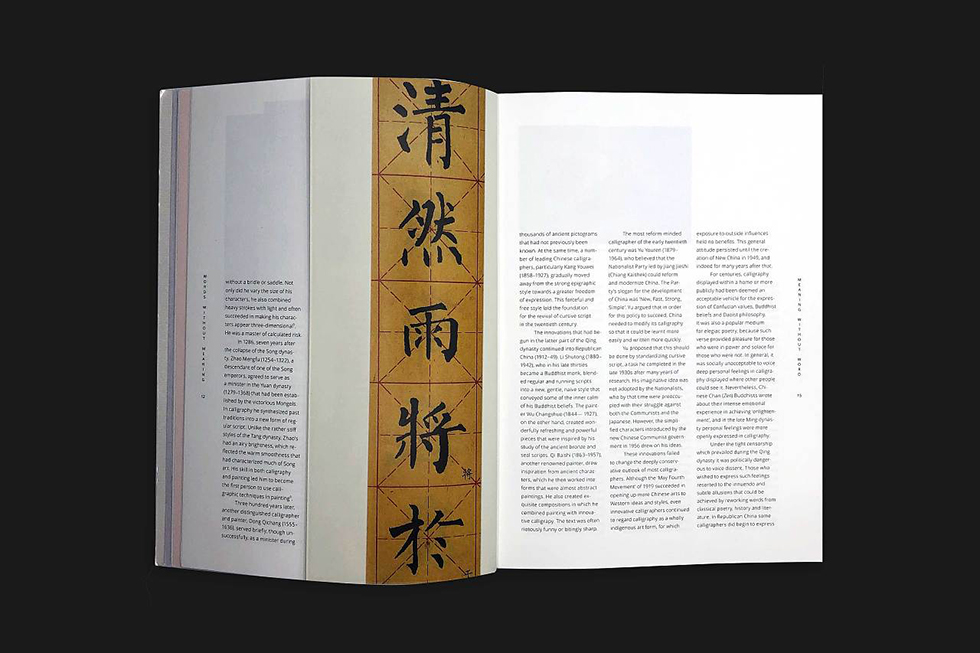 WORDS WITHOUT MEANING
12
without a bridle or saddle. Not
only did he vary the size of his
characters, he also combined
heavy strokes with light and often
succeeded in making his charac-
ters appear three-dimensional".
He was a master of calculated risk.
In 1286, seven years after
the collapse of the Song dynas-
ty, Zhao Mengfu (1254–1322), a
descendant of one of the Song
emperors, agreed to serve as
a minister in the Yuan dynasty
(1279–1368) that had been estab-
lished by the victorious Mongols.
In calligraphy he synthesized past
traditions into a new form of reg-
ular script. Unlike the rather stiff
styles of the Tang dynasty, Zhao's
had an airy brightness, which re-
flected the warm smoothness that
had characterized much of Song
art. His skill in both calligraphy
and painting led him to become
the first person to use calli-
graphic techniques in painting".
Three hundred years later,
another distinguished calligrapher
and painter, Dong Qichang (1555–
1636), served briefly, though un-
successfully, as a minister during
清
然
雨
將
將
於
thousands of ancient pictograms
that had not previously been
known. At the same time, a num-
ber of leading Chinese calligra-
phers, particularly Kang Youwei
(1858–1927), gradually moved
away from the strong epigraphic
style towards a greater freedom
of expression. This forceful and
free style laid the foundation
for the revival of cursive script
in the twentieth century.
The innovations that had be-
gun in the latter part of the Qing
dynasty continued into Republican
China (1912–49). Li Shutong (1880–
1942), who in his late thirties
became a Buddhist monk, blend-
ed regular and running scripts
into a new, gentle, naive style that
conveyed some of the inner calm
of his Buddhist beliefs. The paint-
er Wu Changshuo (1844— 1927),
on the other hand, created won-
derfully refreshing and powerful
pieces that were inspired by his
study of the ancient bronze and
seal scripts. Qi Baishi (1863–1957),
another renowned painter, drew
inspiration from ancient charac-
ters, which he then worked into
forms that were almost abstract
paintings. He also created ex-
quisite compositions in which he
combined painting with innova-
tive calligrapy. The text was often
riotously funny or bitingly sharp.
The most reform-minded
calligrapher of the early twentieth
century was Yu Youren (1879–
1964), who believed that the
Nationalist Party led by Jiang Jieshi
(Chiang Kaishek) could reform
and modernize China. The Par-
ty's slogan for the development
of China was 'New, Fast, Strong,
Simple'. Yu argued that in order
for this policy to succeed, China
needed to modify its calligraphy
so that it could be learnt more
easily and written more quickly.
Yu proposed that this should
be done by standardizing cursive
script, a task he completed in the
late 1930s after many years of
research. His imaginative idea was
not adopted by the Nationalists,
who by that time were preoccu-
pied with their struggle against
both the Communists and the
Japanese. However, the simpli-
fied characters introduced by the
new Chinese Communist govern-
ment in 1956 drew on his ideas.
These innovations failed
to change the deeply conserv-
ative outlook of most calligra-
phers. Although the 'May Fourth
Movement' of 1919 succeeded in
opening up more Chinese arts to
Western ideas and styles, even
innovative calligraphers continued
to regard calligraphy as a wholly
indigenous art form, for which
exposure to outside influences
held no benefits. This general
attitude persisted until the cre-
ation of New China in 1949, and
indeed for many years after that.
For centuries, calligraphy
displayed within a home or more
publicly had been deemed an
acceptable vehicle for the expres-
sion of Confucian values, Buddhist
beliefs and Daoist philosophy.
It was also a popular medium
for elegiac poetry, because such
verse provided pleasure for those
who were in power and solace for
those who were not. In general, it
was socially unacceptable to voice
deep personal feelings in calligra-
phy displayed where other people
could see it. Nevertheless, Chi-
nese Chan (Zen Buddhists) wrote
about their intense emotional
experience in achieving 'enlighten-
ment', and in the late Ming dynas-
ty personal feelings were more
openly expressed in calligraphy.
Under the tight censorship
which prevailed during the Qing
dynasty, it was politically danger-
ous to voice dissent. Those who
wished to express such feelings
resorted to the innuendo and
subtle allusions that could be
achieved by reworking words from
classical poetry, history and liter-
ature. In Republican China some
calligraphers did begin to express
MEANING WITHOUT WORD